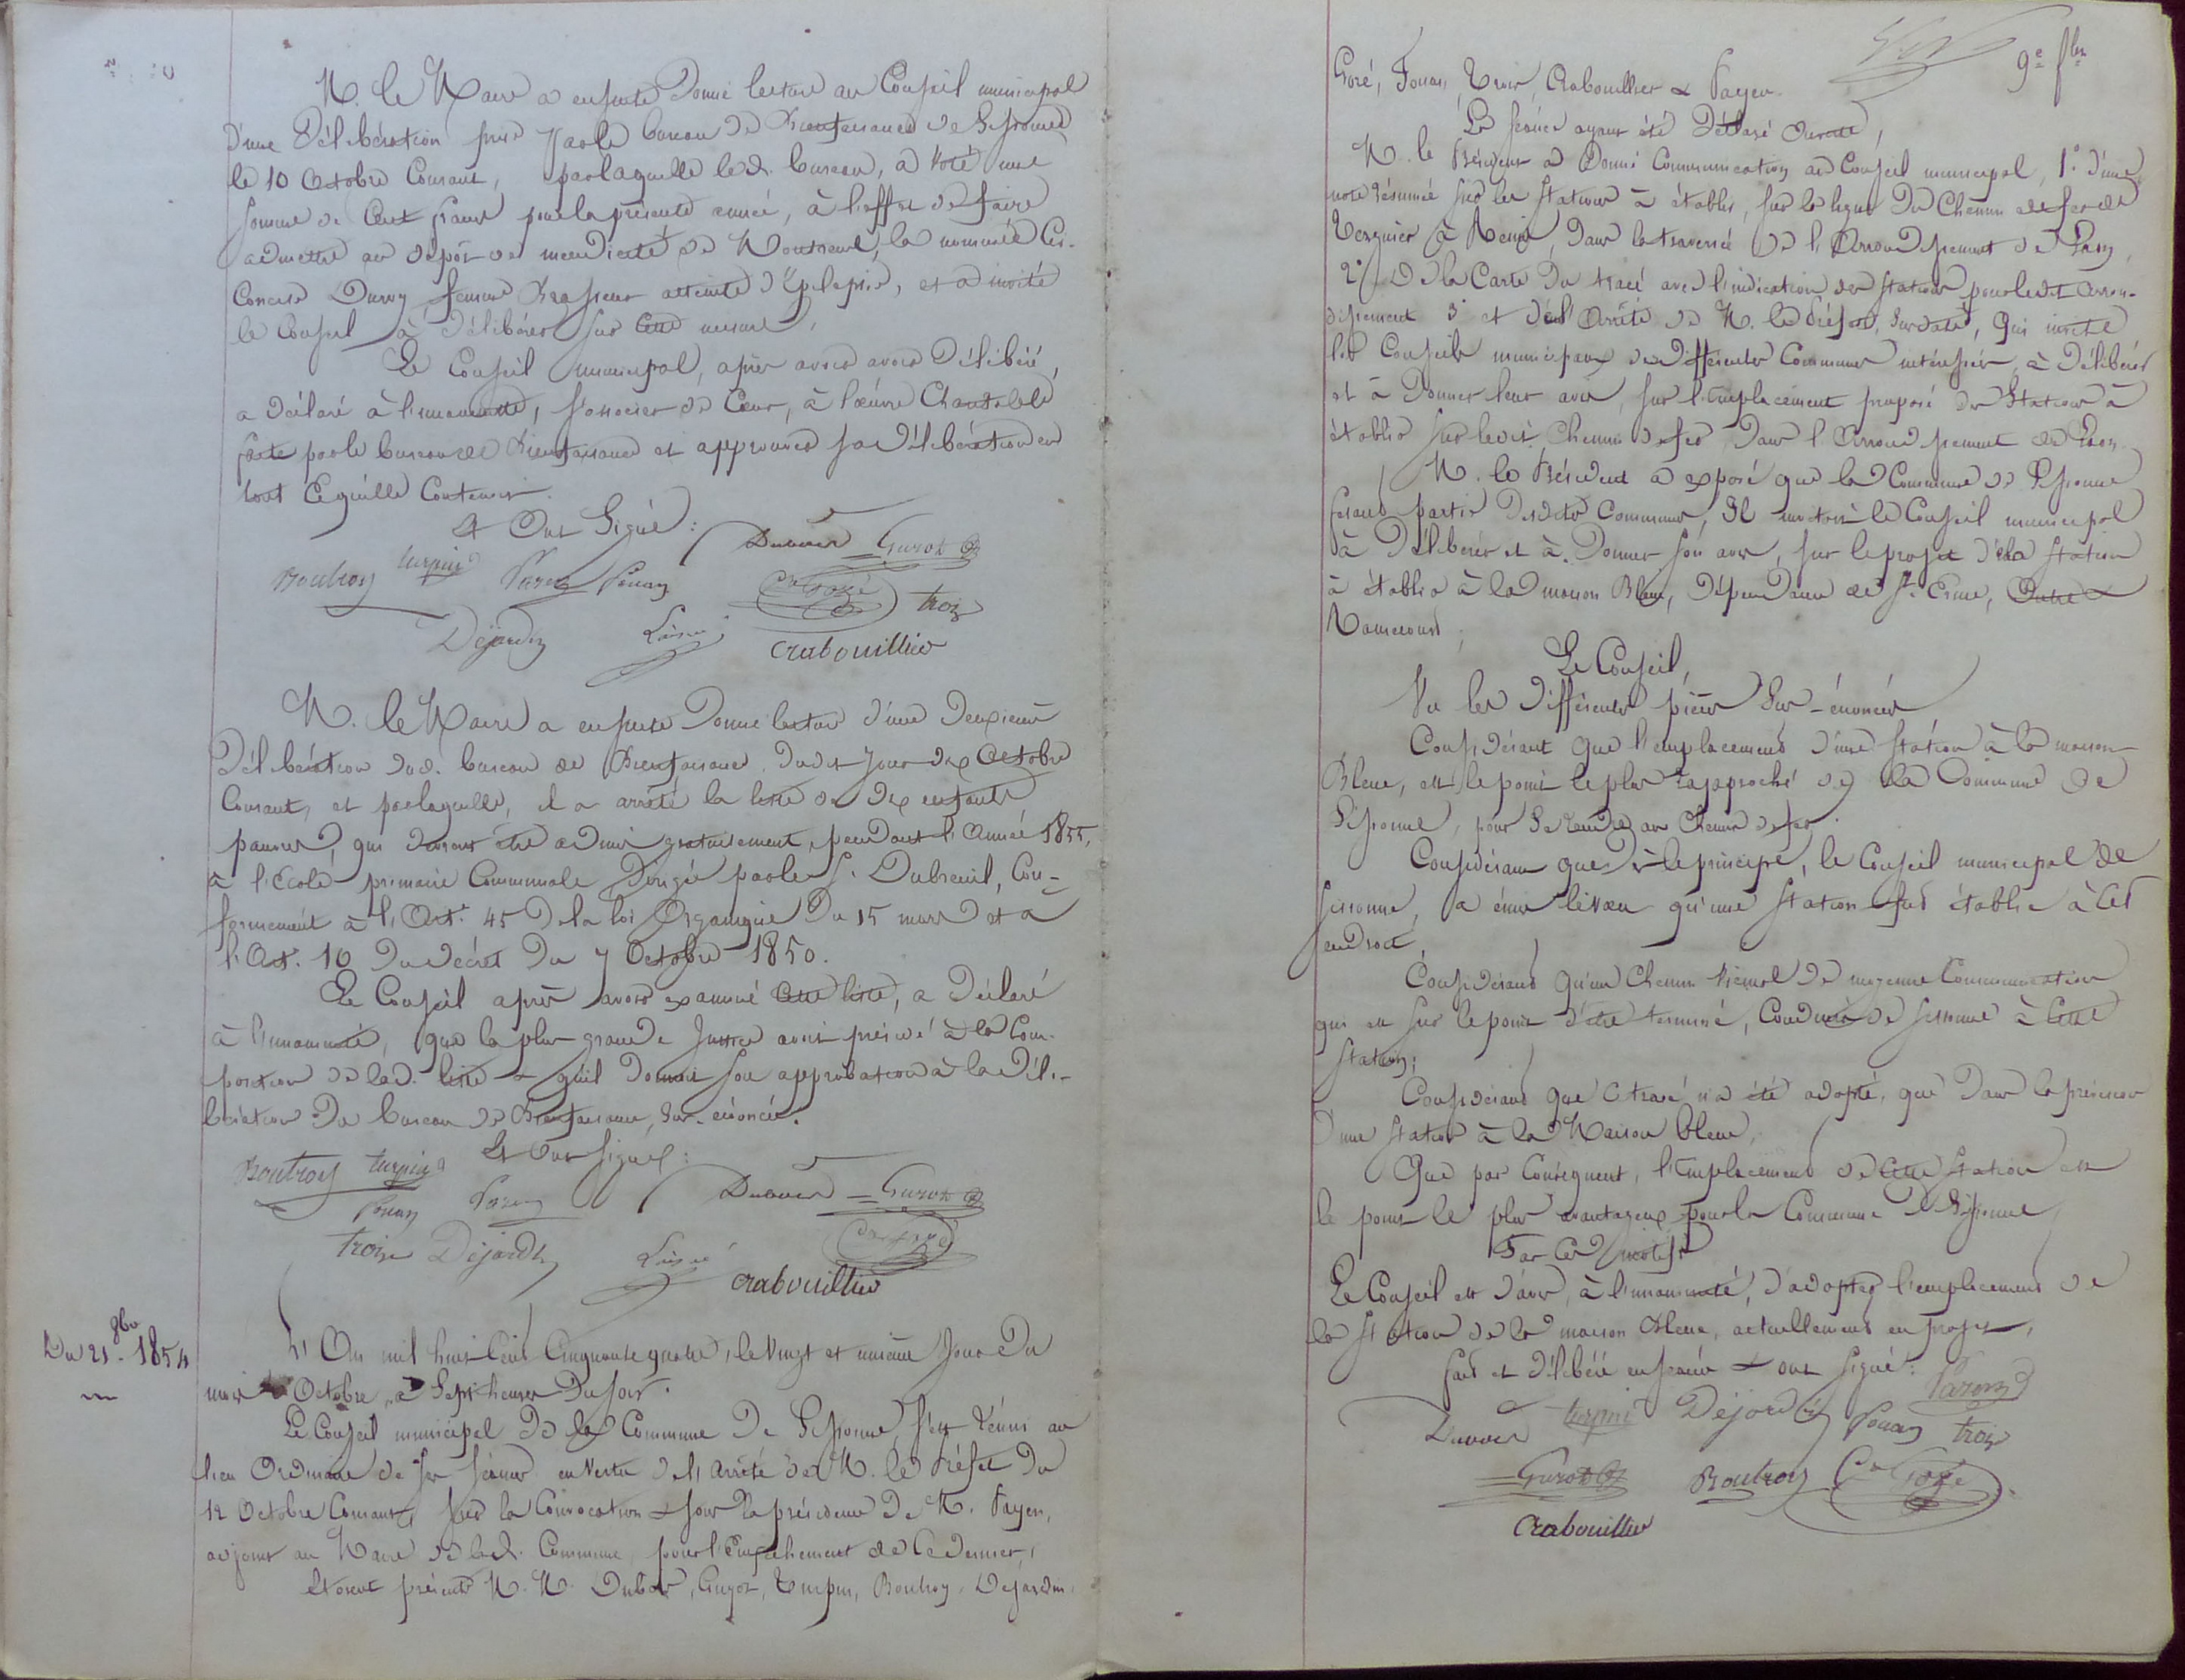 M. le Maire a ensuite Donné lecture au Conseil municipal
d'une Délibération prise par le bureau de Bienfaisance de Sissonne
le 10 Octobre Courant, par laquelle led. bureau, a voté une
somme de Cent francs pour la présente année, à l'effet de faire
admettre au dépôt de mendicité de Montreuil, la nommée
Duruy, femme atteinte d'Epilepsie, et a invité
le Conseil à Délibérer sur cette mesure,
Le Conseil municipal, après avoir Délibéré,
a déclaré à l'unanimité, s'associer de Cœur, à l'œuvre Charitable
faite par le bureau de Bienfaisance et approuver sa Délibération en
tout Ce qu'elle Contenait.
Et Ont Signé :
Duvoer Guyot
Boutroy turpin Payen Fouan
Cr Gozé troiz
Dejardin crabouillier
M. le Maire a ensuite Donné lecture d'une Deuxième
Délibération dud. bureau de Bienfaisance dudit Jour dix Octobre
Courant, et par laquelle, il a arrêté la liste de Dix enfants
pauvres, qui devront être admis gratuitement, pendant l'Année 1855,
à l'Ecole primaire Communale Dirigée par le S. Dubreuil, Con-
formément à l'Art. 45 De la loi Organique Du 15 mars et à
l'Art. 10 Du décret Du 7 Octobre 1850.
Le Conseil après avoir examiné Cette liste, a Déclaré
à l'unanimité, que la plus grande Justice avait présidé à la Com-
position de lad. liste & qu'il donnait son approbation à la Déli-
bération Du bureau de Bienfaisance, sus-énoncée.
Et Ont Signé :
Boutroy turpin Duvoer Guyot
Fouan Payen Cr Gozé
troiz Dejardin
crabouillier
Du 21 8bre 1854
L'An mil huit Cent Cinquante quatre, le Vingt et unième Jour Du
mois Octobre, à Sept heures Du Soir.
Le Conseil municipal De la Commune De Sissonne, s'est réuni au
lieu Ordinaire de ses séances en Vertu de l'Arrêté de M. le Préfet Du
12 Octobre Courant, sur la Convocation & sous la présidence De M. Payen,
adjoint au Maire de lad. Commune, pour l'Empêchement de Ce Dernier,
Etaient présents M. M. Guyot, Turpin, Boutroy, Dejardin,
9e flet
Gozé, Fouan, Crabouillier & Payen.
La séance ayant été Déclaré Ouverte,
M. le Président a Donné Communication au Conseil municipal, 1° d'une
note résumée sur les stations à établir, sur la ligne Du Chemin de fer de
Tergnier à Reims, Dans la traversée de l'Arrondissement de Laon,
2° De la Carte Du tracé avec l'indication des stations pour ledit Arron-
dissement 3° et de l'Arrêté de M. le Préfet, Susdaté, Qui invite
les Conseils municipaux des différentes Communes intéressées, à Délibérer
et à Donner leur avis, sur l'Emplacement proposé des Stations à
établir sur ledit Chemin de fer Dans l'Arrondissement de Laon.
M. le Président a exposé que la Commune de Sissonne
faisant partie Desdites Communes, Il invitait le Conseil municipal
à Délibérer et à Donner son avis, sur le projet de la station
à établir à la maison Bleue, Dépendance de St Erme, Outre &
Ramecourt,
Le Conseil,
Vu les différentes pièces Sus-énoncées
Considérant que l'emplacement d'une station à la maison
Bleue, est le point le plus rapproché de la Commune de
Sissonne, pour Se rendre au Chemin de fer.
Considérant que dès le principe, le Conseil municipal de
Sissonne, a émis le vœu qu'une station fut établie à Cet
endroit,
Considérant qu'un Chemin Vicinal de moyenne Communication
qui est sur le point d'être terminé, Conduira de Sissonne à Cette
Station;
Considérant que Ce tracé n'a été adopté, que Dans la prévision
D'une station à la Maison bleue,
Que par Conséquent, l'Emplacement de Cette station est
le point le plus avantageux pour la Commune de Sissonne,
Par Ces motifs
Le Conseil est d'avis, à l'unanimité, d'adopter l'emplacement de
la station de la maison Bleue, actuellement en projet,
Fait et Délibéré en séance & ont signé :
Payen
Duvoer turpin Dejardin Fouan troiz
Guyot Boutroy Cr Gozé
crabouillier